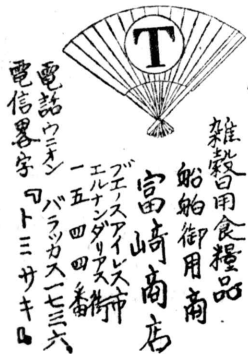 T
雑穀日用食糧品
船舶御用商
富崎商店
ブエノスアイレス市
エルナンダリアス街
一五四四番
電話ウニオン
バラッカス一七三六、
電信畧字『トミサキ』